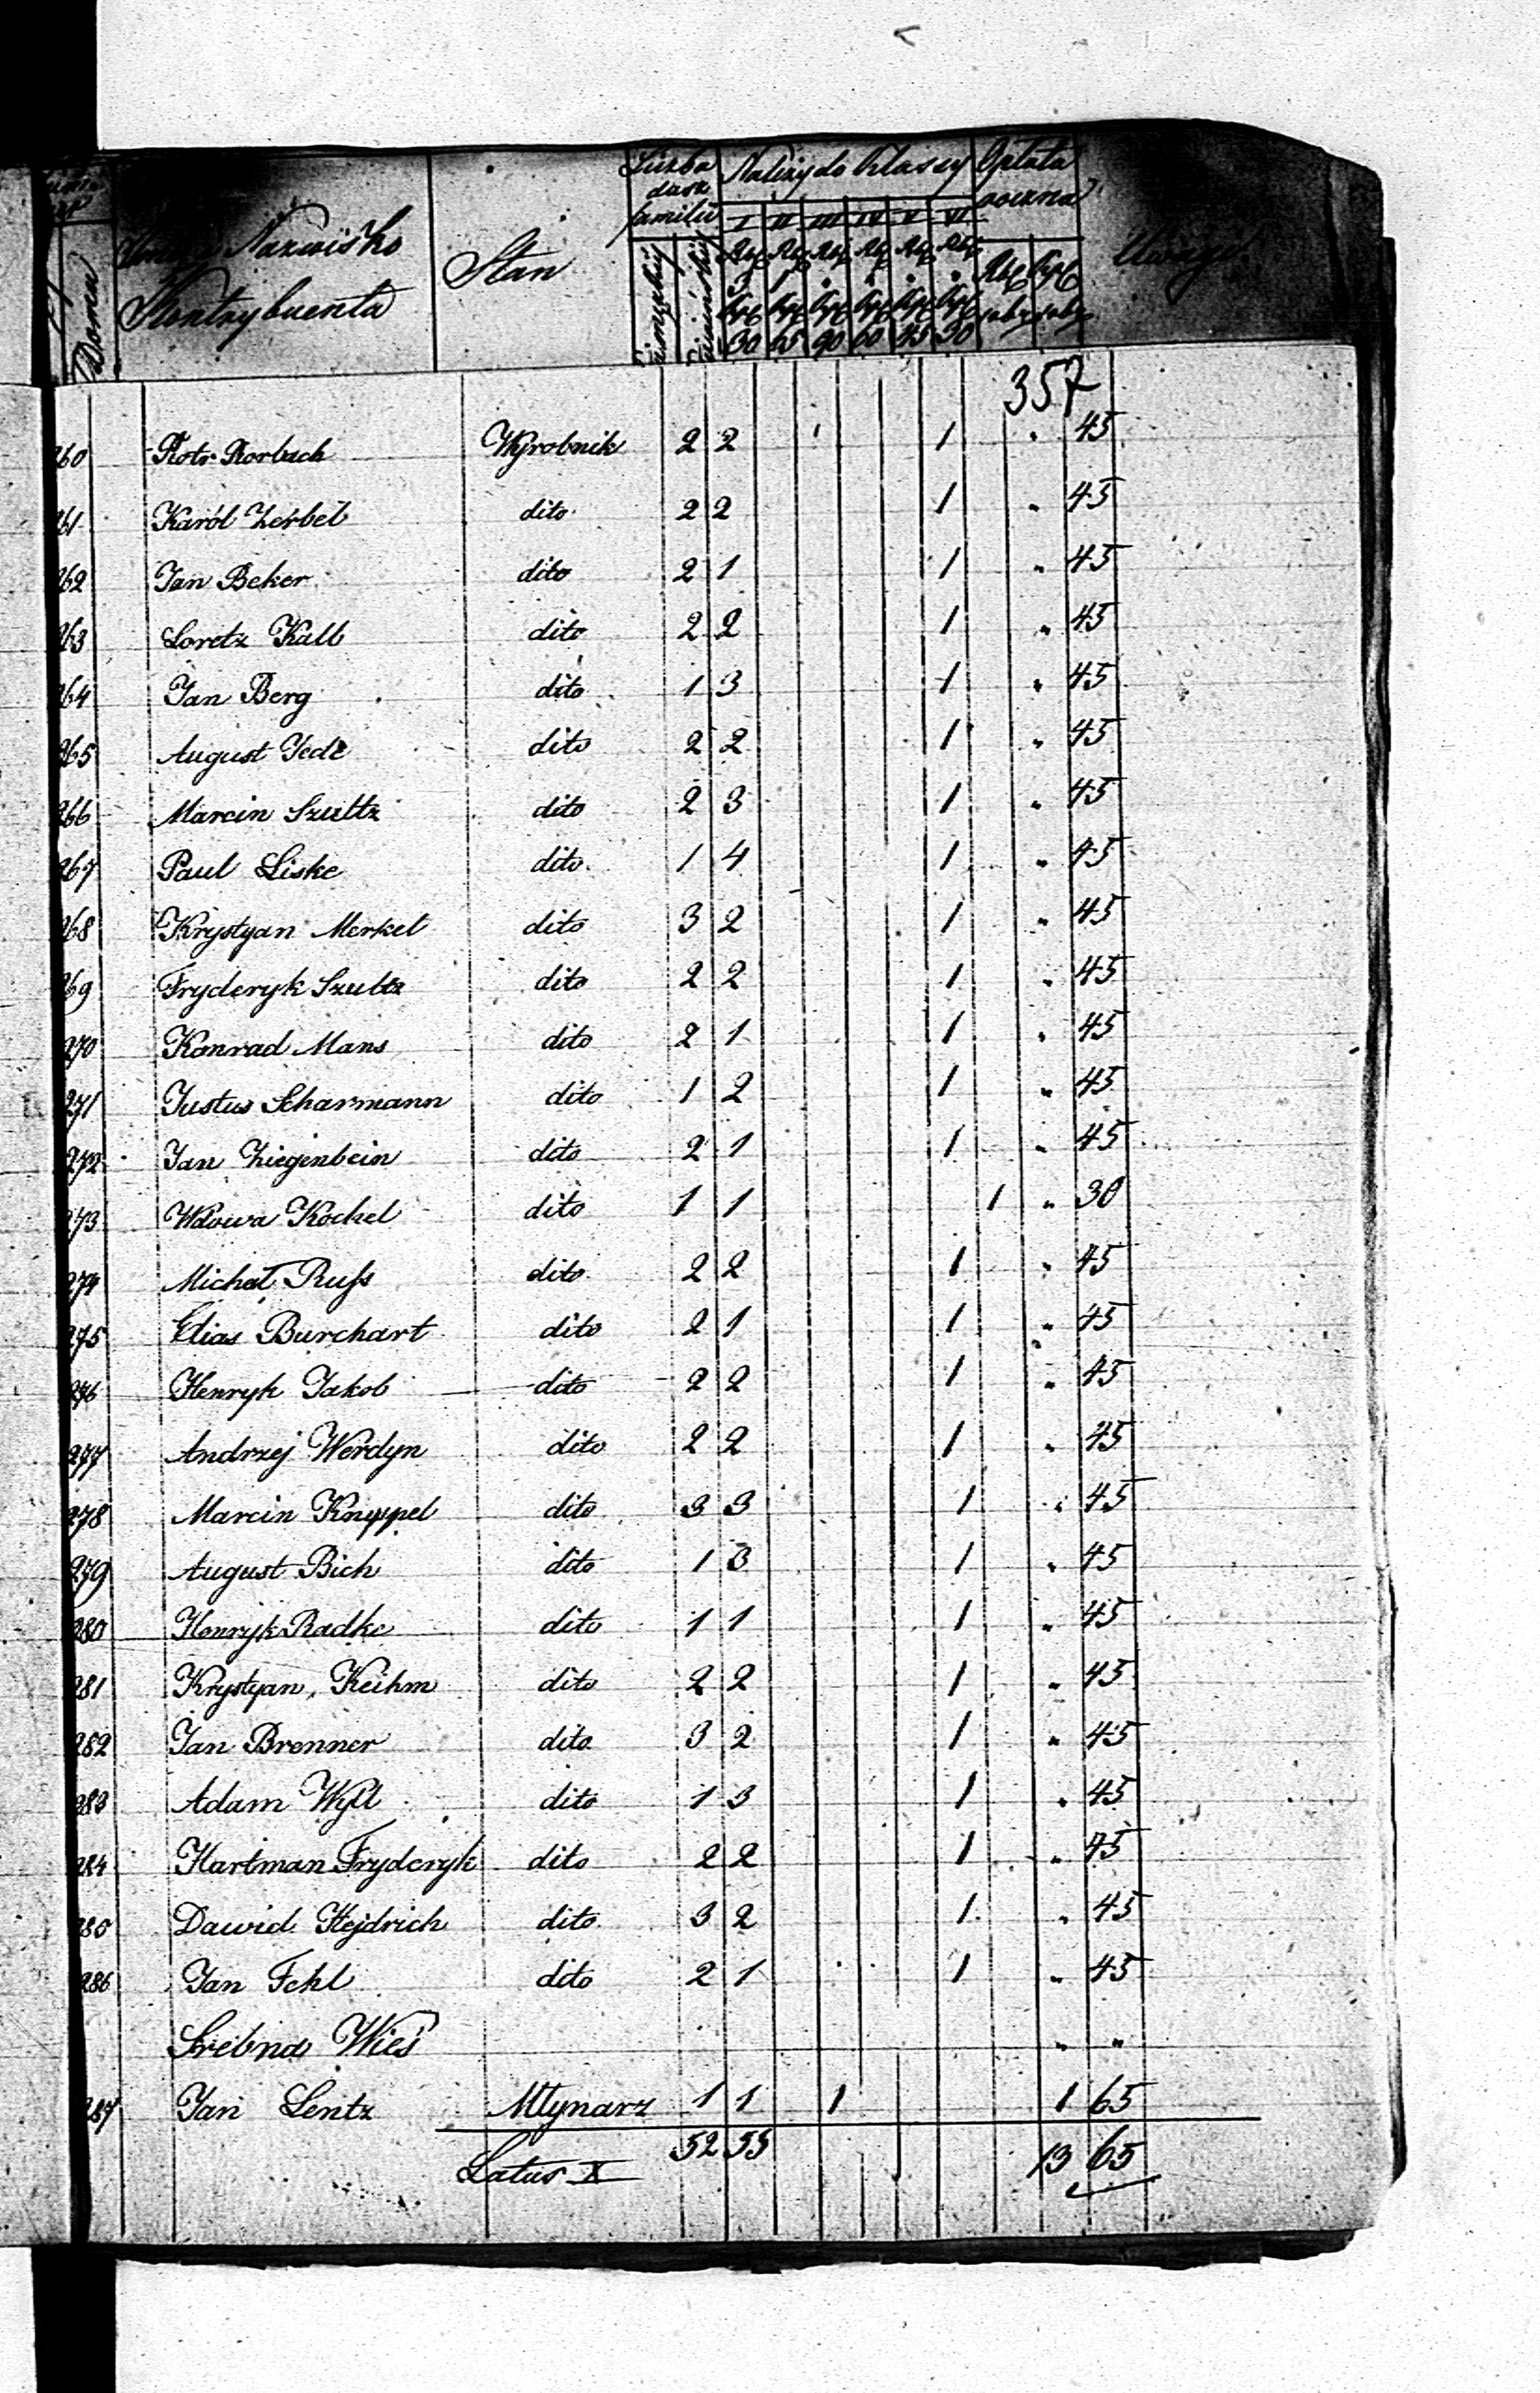 Nazwisko Kontrybuenta Stan Liczba dusz familii Należy do Klassy Opłata roczna Uwagi
Domu I II III IV V VI
30 45 90 60 45 30
357
260 Piotr Rorbach Wyrobnik 2 2 1 " 45
261 Karól Zerbel dito 2 2 1 " 45
262 Jan Beker dito 2 1 1 " 45
263 Loretz Kalb dito 2 2 1 " 45
264 Jan Berg dito 1 3 1 " 45
265 August dito 2 2 1 " 45
266 Marcin Szultz dito 2 3 1 " 45
267 Paul Liske dito 1 4 1 " 45
268 Krystyan Merkel dito 3 2 1 " 45
269 Fryderyk Szultz dito 2 2 1 " 45
270 Konrad Mans dito 2 1 1 " 45
271 Justus Scharmann dito 1 2 1 " 45
272 Jan Ziegenbein dito 2 1 1 " 45
273 Wdowa Kockel dito 1 1 1 " 30
274 Michał Ruſs dito 2 2 1 " 45
275 Elias Burchart dito 2 1 1 " 45
276 Henryk Jakob dito 2 2 1 " 45
277 Andrzej Werdyn dito 2 2 1 " 45
278 Marcin Knyppel dito 3 3 1 " 45
279 August Bich dito 1 3 1 " 45
280 Henryk Radke dito 1 1 1 " 45
281 Krystyan Keihm dito 2 2 1 " 45
282 Jan Brenner dito 3 2 1 " 45
283 Adam dito 1 3 1 " 45
284 Hartman Fryderyk dito 2 2 1 " 45
280 Dawid Hejdrich dito 3 2 1 " 45
286 Jan Fehl dito 2 1 1 " 45
Srebna Wieś " "
287 Jan Lentz Młynarz 1 1 1 1 65
Latus X 52 55 13 65